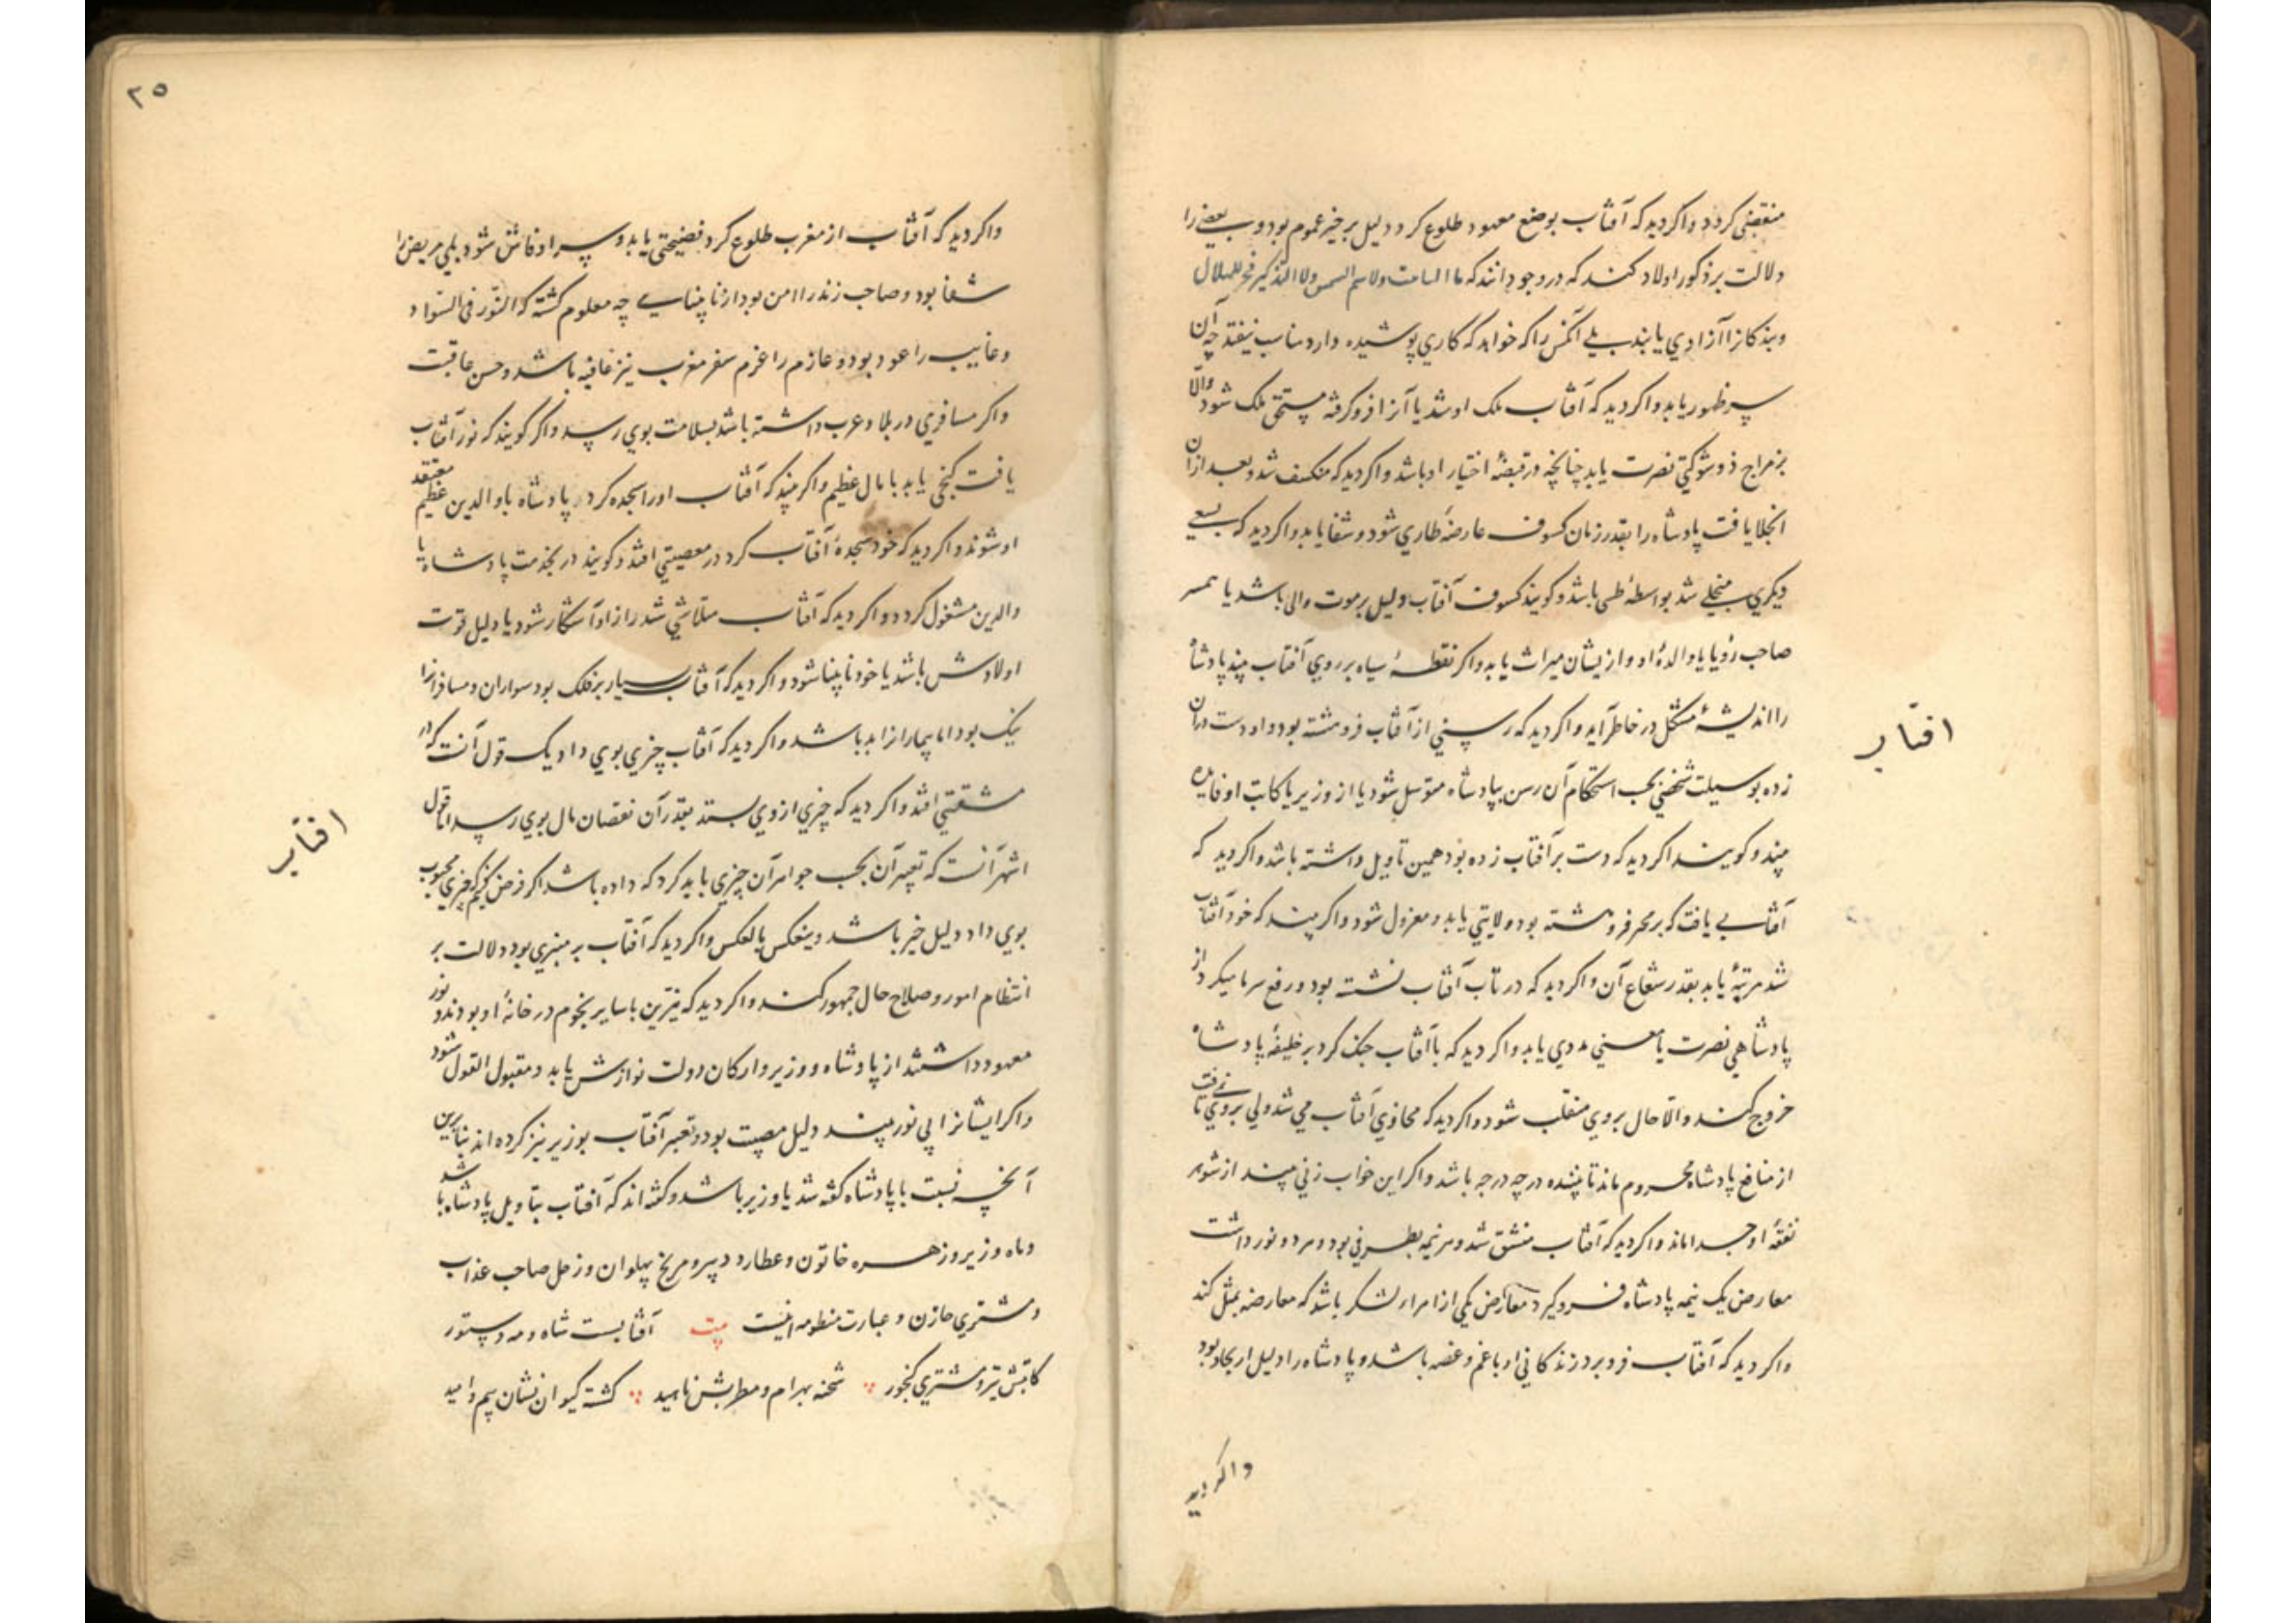 منقضی کردد واکر دید که آفتاب بوضع معهود طلوع کرد دلیل بر خیر عموم بود و بعضی را
دلالت بر ذکور اولاد کنند که در وجود آیند که ما التانیث ولاسم الشمس ولا التذکیر فخر للهلال
وبندکانرا آزادی یابند بلی آنکس را که خواهد که کاری پوشیده دارد مناسب نیفتد چه آن
سر ظهور یابد واکر دید که آفتاب ملک او شد یا آنرا فرو کرفت مستحق ملک شود والا
بر مزاج ذو شوکتی نصرت یابد چنانچه در قبضهٔ اختیار او باشد واکر دید که منکسف شد و بعد از آن
انجلا یافت پادشاه را بقدر زمان کسوف عارضهٔ طاری شود و شفا یابد واکر دید که بسعی
دیکری منجلی شد بواسطهٔ طبی باشد و کویند کسوف آفتاب دلیل بر موت والی باشد یا همسر
صاحب رؤیا یا والدهٔ او و ازیشان میراث یابد واکر نقطهٔ سیاه بر روی آفتاب بیند پادشاه
را اندیشهٔ مشکل در خاطر آید واکر دید که رسنی از آفتاب فرو هشته بود و او دست در آن
زده بوسیلت شخصی بحسب استحکام آن رسن بپادشاه متوسل شود یا از وزیر یا کاتب او فایده
بیند و کویند اکر دید که دست بر آفتاب زده بود همین تاویل داشته باشد واکر دید که
آفتاب بی یافت که بر محر فرو هشته بود ولایتی یابد و معزول شود واکر بیند که خود آفتاب
شد مرتبهٔ یابد بقدر شعاع آن واکر دید که در تاب آفتاب نشسته بود و رفع سرما میکرد از
پادشاهی نصرت یا معینی مددی یابد واکر دید که با آفتاب جنک کرد بر خلیفهٔ پادشاه
خروج کند والا حال بروی منقلب شود واکر دید که محاذی آفتاب می شد ولی بروی نمی تافت
از منافع پادشاه محروم ماند تا بیننده در چه درجه باشد واکر این خواب زنی بیند از شوهر
نفقهٔ او جدا ماند واکر دید که آفتاب منشق شد و هر نیمه بطرفی بود و هر دو نور داشت
معارض یک نیمه پادشاه فرو کیرد معارض یکی از امراء لشکر باشد که معارضه بمثل کند
واکر دید که آفتاب فرو برد زندکانی او با غم و غصه باشد و پادشاه را دلیل ایجاد بود
واکر دید
افتاب
٢٥
واکر دید که آفتاب از مغرب طلوع کرد فضیحتی یابد و سر او فاش شود بلی مریض را
شفا بود و صاحب زندرا امن بود از نابینایی چه معلوم کشته که النور فی السواد
وغایب را عود بود و عازم را عزم سفر مغرب نیز عافیه باشد و حسن عاقبت
واکر مسافری در بلاد عرب داشته باشد بسلامت بوی رسد واکر کویند که نور آفتاب
یافت کنجی یابد با مال عظیم واکر بیند که آفتاب او را سجده کرد پادشاه یا والدین معتقد عظیم
او شوند واکر دید که خود سجدهٔ آفتاب کرد در معصیتی افتد و کویند در بخدمت پادشاه یا
والدین مشغول کردد واکر دید که آفتاب متلاشی شد راز او آشکار شود یا دلیل قوت
اولادش باشد یا خود نابینا شود واکر دید که آفتاب سیار بر فلک بود سواران و مسافرانرا
نیک بود اما بیمارانرا بد باشد واکر دید که آفتاب چیزی بوی داد یک قول آنست که در
مشقتی افتد واکر دید که چیزی از وی بستد بقدر آن نقصان مال بوی رسد اما قول
اشهر آنست که تعبیر آن بحسب جواهر آن چیزی باید کرد که داده باشد اکر فرض کنیم که چیزی محبوب
بوی داد دلیل خیر باشد و ینعکس بالعکس واکر دید که آفتاب بر منبری بود دلالت بر
انتظام امور و صلاح حال جمهور کند واکر دید که نیرین با سایر نجوم در خانهٔ او بودند و نور
معهود داشتند از پادشاه و وزیر و ارکان دولت نوازش یابد و مقبول القول شود
واکر ایشانرا بی نور بیند دلیل مصیبت بود و تعبیر آفتاب بوزیر نیز کرده اند بنابرین
آنچه نسبت با پادشاه کفته شد یا وزیر باشد و کفته اند که آفتاب بتاویل پادشاه باشد
وماه وزیر و زهره خاتون و عطارد دبیر و مریخ پهلوان و زحل صاحب عذاب
ومشتری خازن و عبارت منظومه اینست بیت آفتابست شاه و مه دستور
کاتبش تیر و مشتری کنجور شحنه بهرام و مطربش ناهید کشته کیوان نشان بیم و امید
افتاب